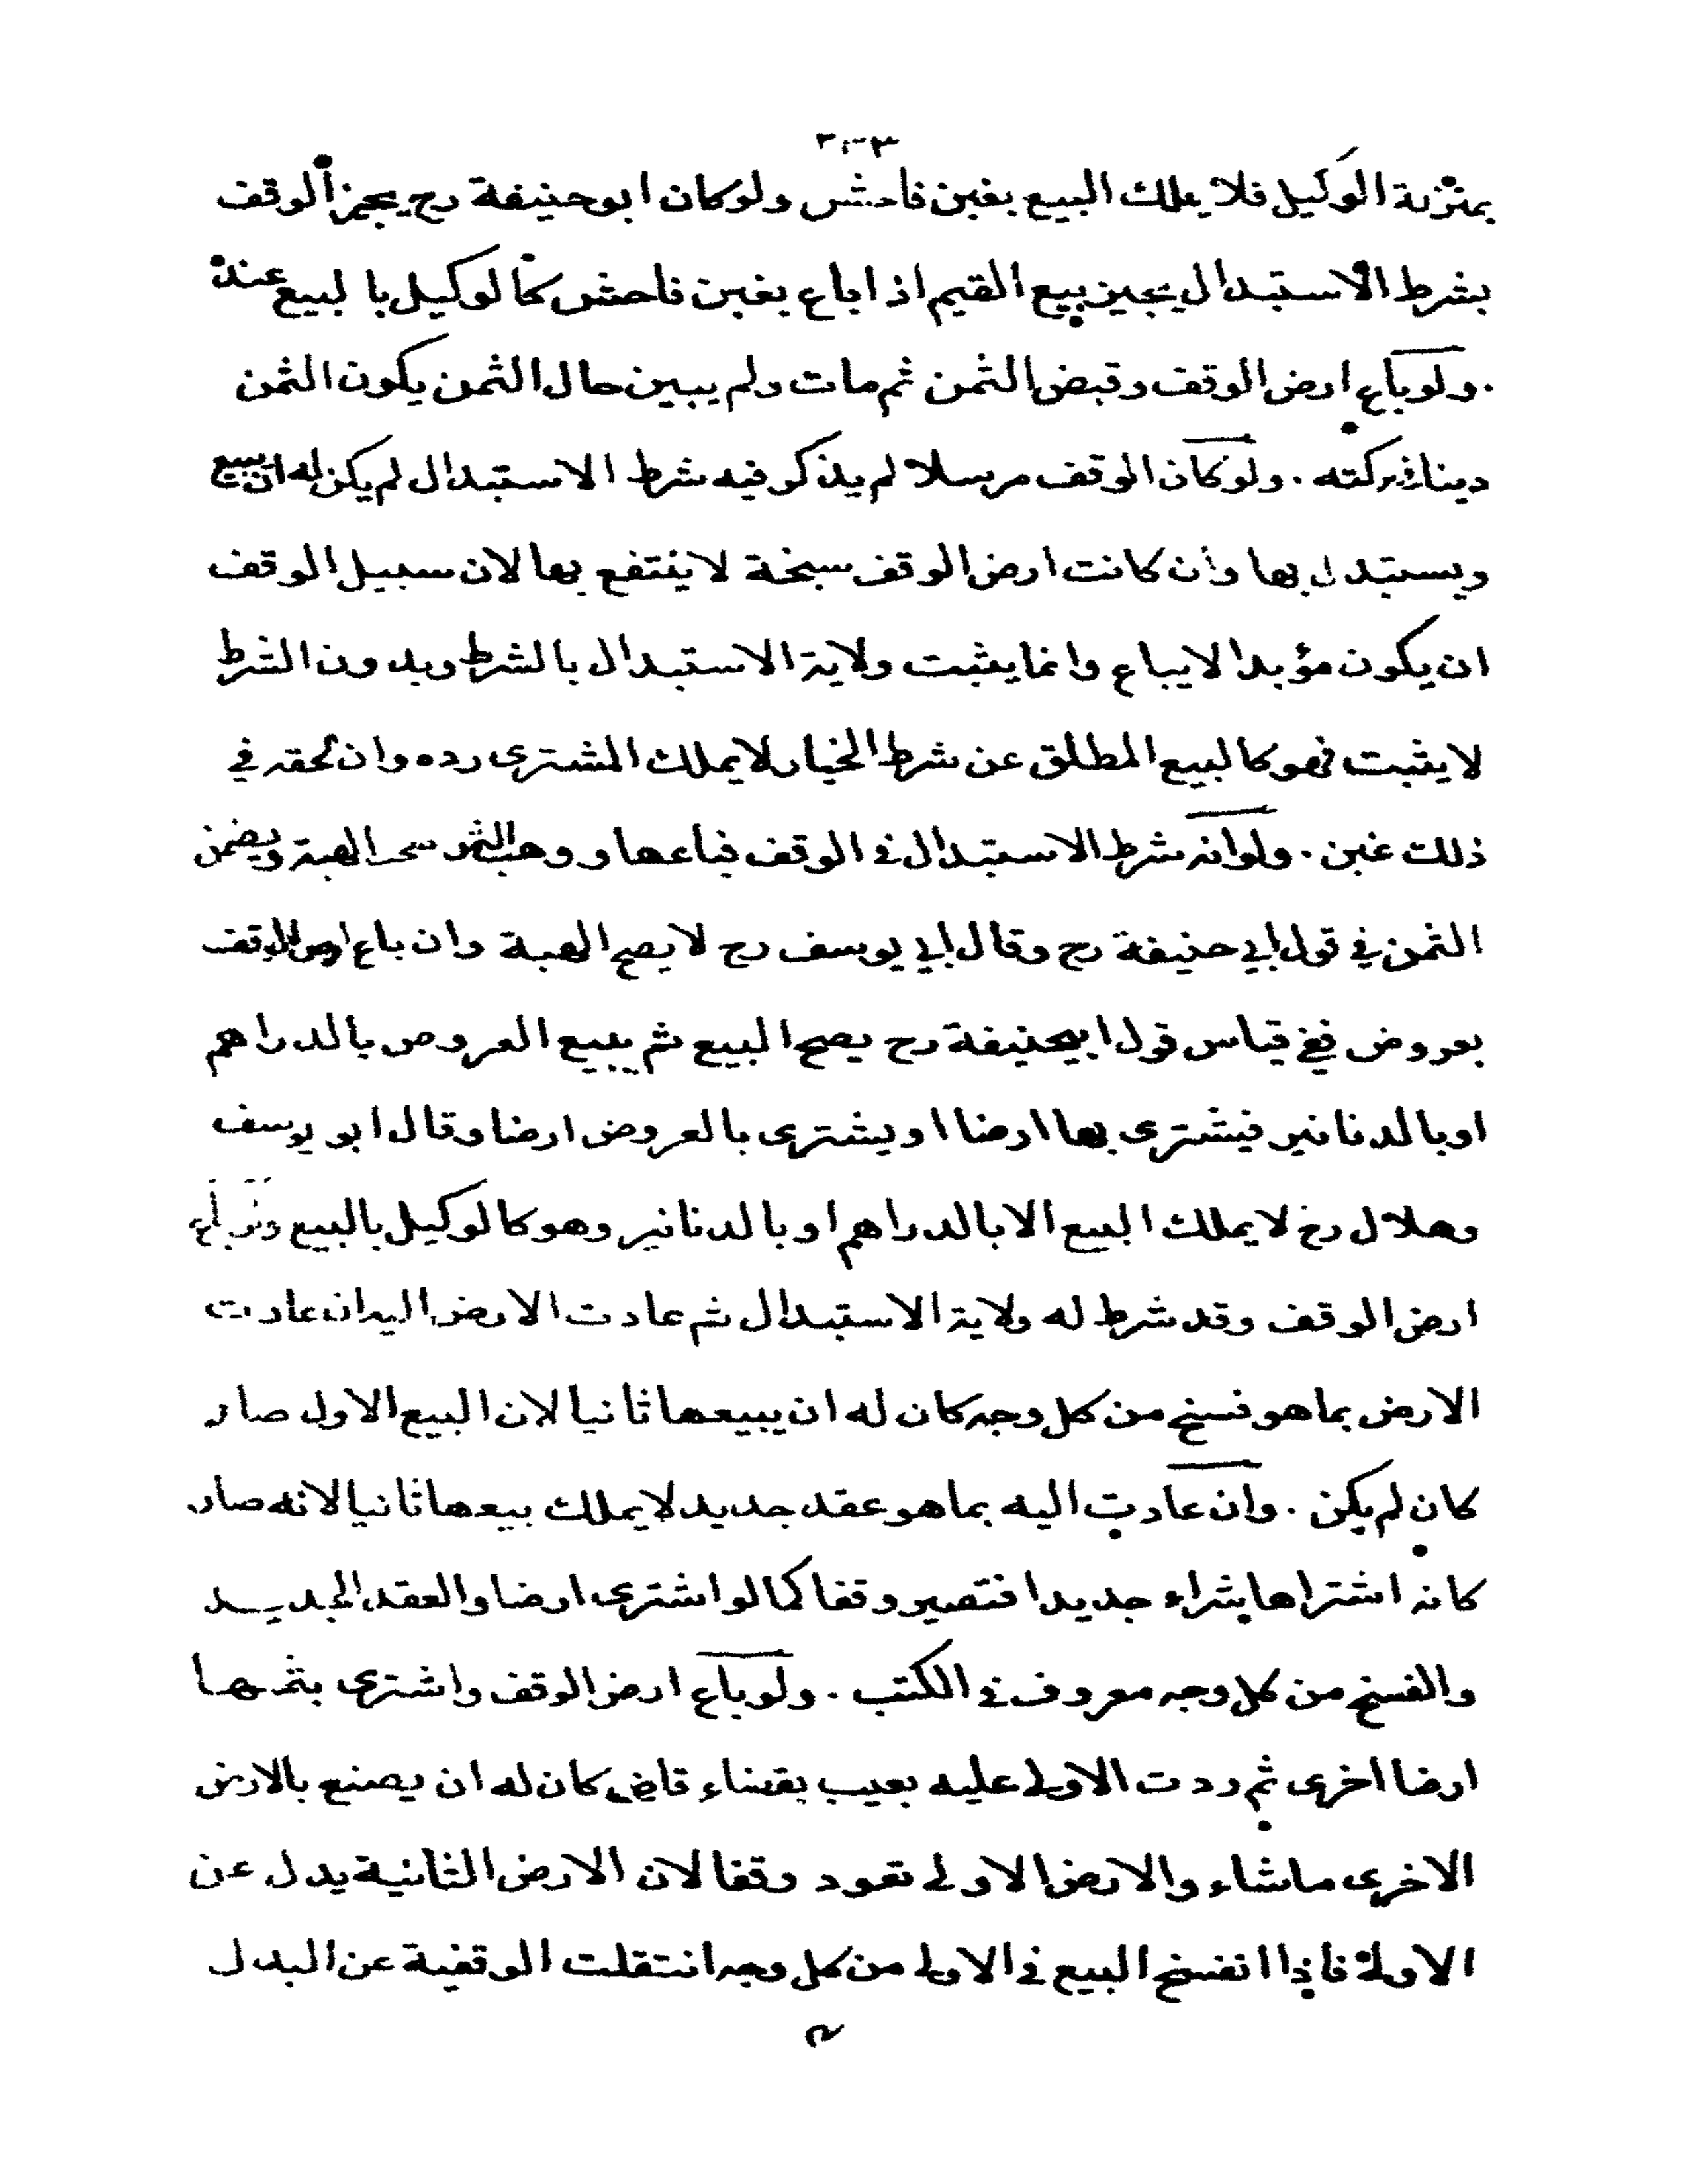 ٣٠٣
بمنزلة الوكيل فلا يملك البيع بغبن فاحش ولو كان ابوحنيفة رح يجيز الوقف
بشرط الاستبدال يجيز بيع القيم اذا باع بغبن فاحش كالوكيل بالبيع عنده
. ولو باع ارض الوقف وقبض الثمن ثم مات ولم يبين حال الثمن يكون الثمن
دينا في تركته . ولو كان الوقف مرسلا لم يذكر فيه شرط الاستبدال لم يكن له ان يبيع
ويستبدل بها وان كانت ارض الوقف سبخة لا ينتفع بها لان سبيل الوقف
ان يكون مؤبدا لا يباع وانما يثبت ولاية الاستبدال بالشرط وبدون الشرط
لا يثبت فهو كالبيع المطلق عن شرط الخيار لا يملك المشترى رده وان لحقه في
ذلك غبن . ولو انه شرط الاستبدال في الوقف فباعها ووهب الثمن الهبة ويضمن
الثمن في قول ابي حنيفة رح وقال ابي يوسف رح لا يصح الهبة وان باع ارض الوقف
بعروض ففي قياس قول ابيحنيفة رح يصح البيع ثم يبيع العروض بالدراهم
او بالدنانير فيشترى بها ارضا او يشترى بالعروض ارضا وقال ابو يوسف
وهلال رح لا يملك البيع الا بالدراهم او بالدنانير وهو كالوكيل بالبيع باع
ارض الوقف وقد شرط له ولاية الاستبدال ثم عادت الارض اليه ان عادت
الارض بما هو فسخ من كل وجه كان له ان يبيعها ثانيا لان البيع الاول صار
كان لم يكن . وان عادت اليه بما هو عقد جديد لا يملك بيعها ثانيا لانه صار
كانه اشتراها بشراء جديدا فتصير وقفا كما لو اشترى ارضا والعقد الجديد
والفسخ من كل وجه معروف في الكتب . ولو باع ارض الوقف واشترى بثمنها
ارضا اخرى ثم ردت الاولى عليه بعيب بقضاء قاض كان له ان يصنع بالارض
الاخرى ماشاء والارض الاولى تعود وقفا لان الارض الثانية بدل عن
الاولى فاذا انفسخ البيع في الاولى من كل وجه انتقلت الوقفية عن البدل